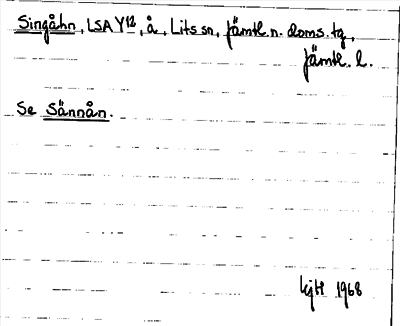 Singåhn, LSA Y12, å, Lits sn, Jämtl. n. doms. tg,
Jämtl. l.
Se Sännån.
1968